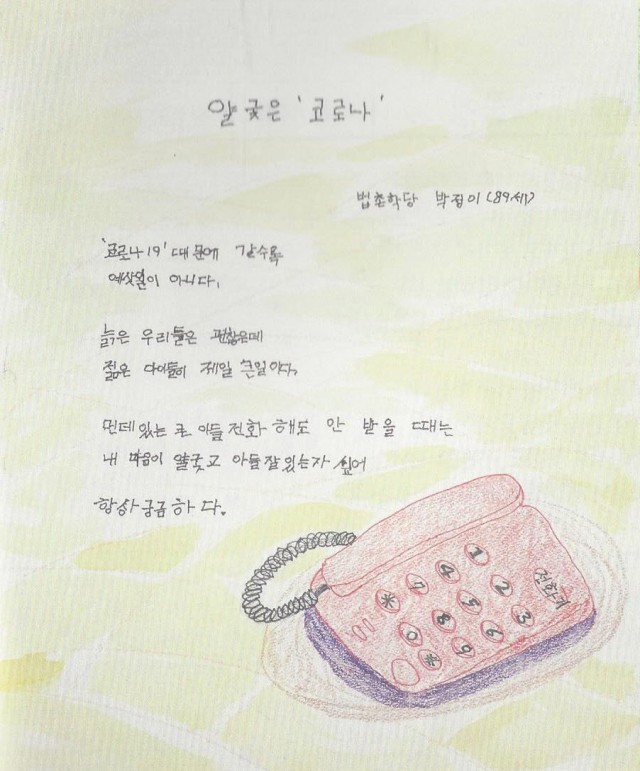 얄궂은 '코로나'
법촌학당 박점이(89세)
'코로나19' 때문에 갈수록
예삿일이 아니다.
늙은 우리들은 괜찮은데
젊은 아이들이 제일 큰일이다.
먼데있는 큰 아들 전화 해도 안 받을 때는
내 마음이 얄궂고 아들잘있는지 싶어
항상궁금하다.
전화기
1 2 3
4 5 6
7 8 9
* 0 *